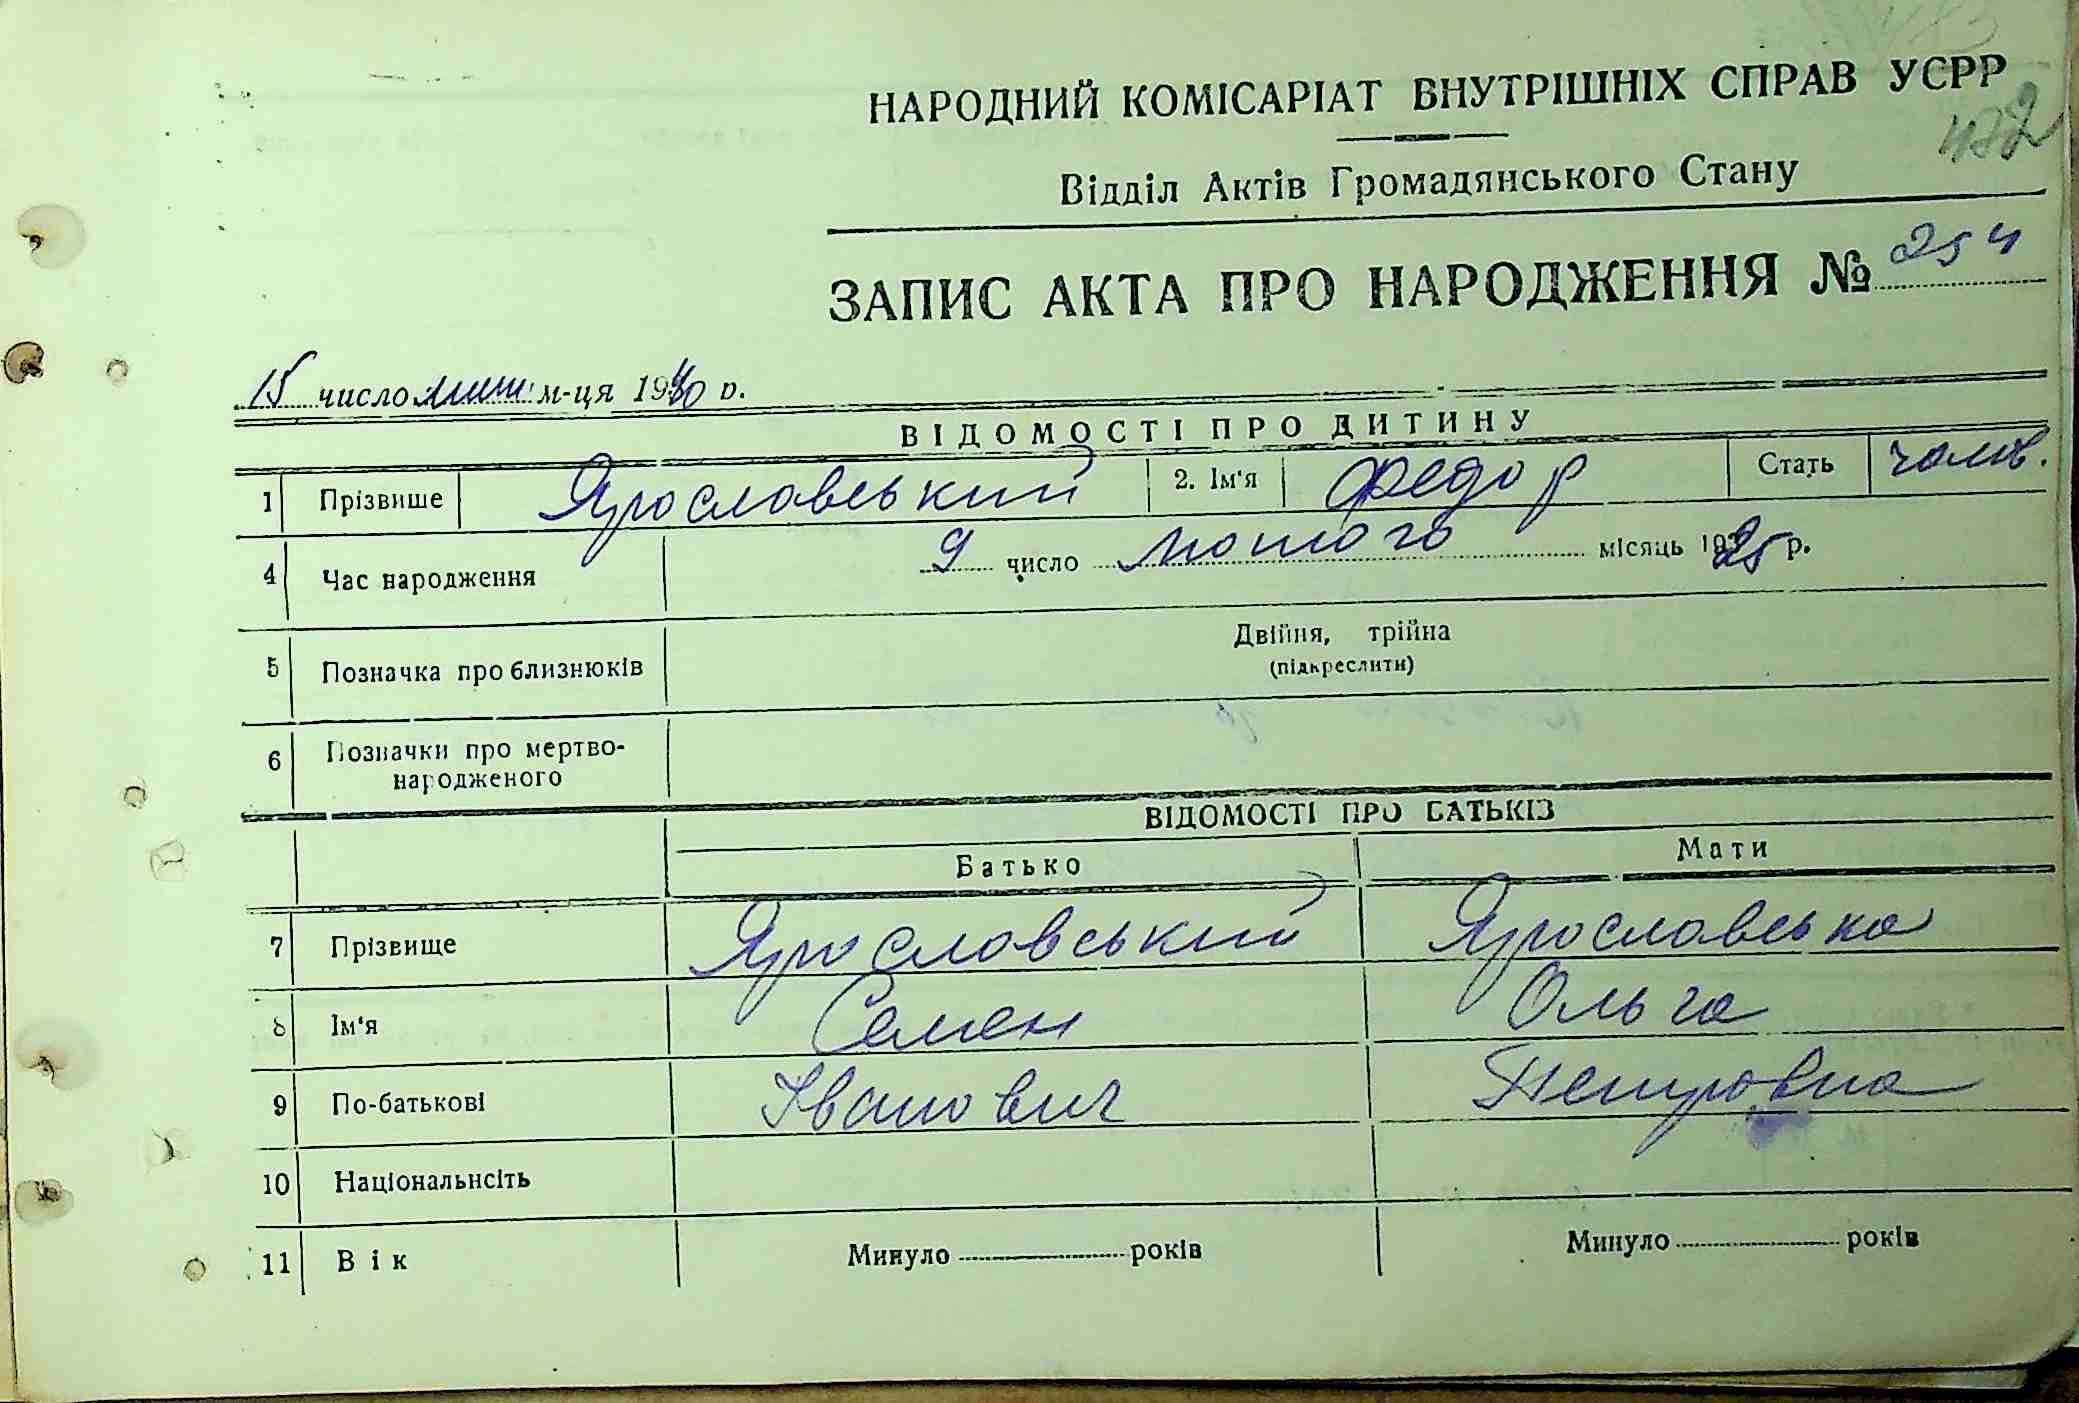 НАРОДНИЙ КОМІСАРІАТ ВНУТРІШНІХ СПРАВ УСРР
472
Відділ Актів Громадянського Стану
ЗАПИС АКТА ПРО НАРОДЖЕННЯ № 254
15 число м-ця 1940 р.
ВІДОМОСТІ ПРО ДИТИНУ
1 Прізвище Ярославський 2. Ім'я Федор Стать чолов.
4 Час народження 9 число лютого місяць 1925 р.
5 Позначка про близнюків Двійня, трійна
(підкреслити)
6 Позначки про мертво-
народженого
ВІДОМОСТІ ПРО БАТЬКІВ
Батько Мати
7 Прізвище Ярославський Ярославська
8 Ім'я Семен Ольга
9 По-батькові Іванович Петровна
10 Національнсіть
11 Вік Минуло років Минуло років